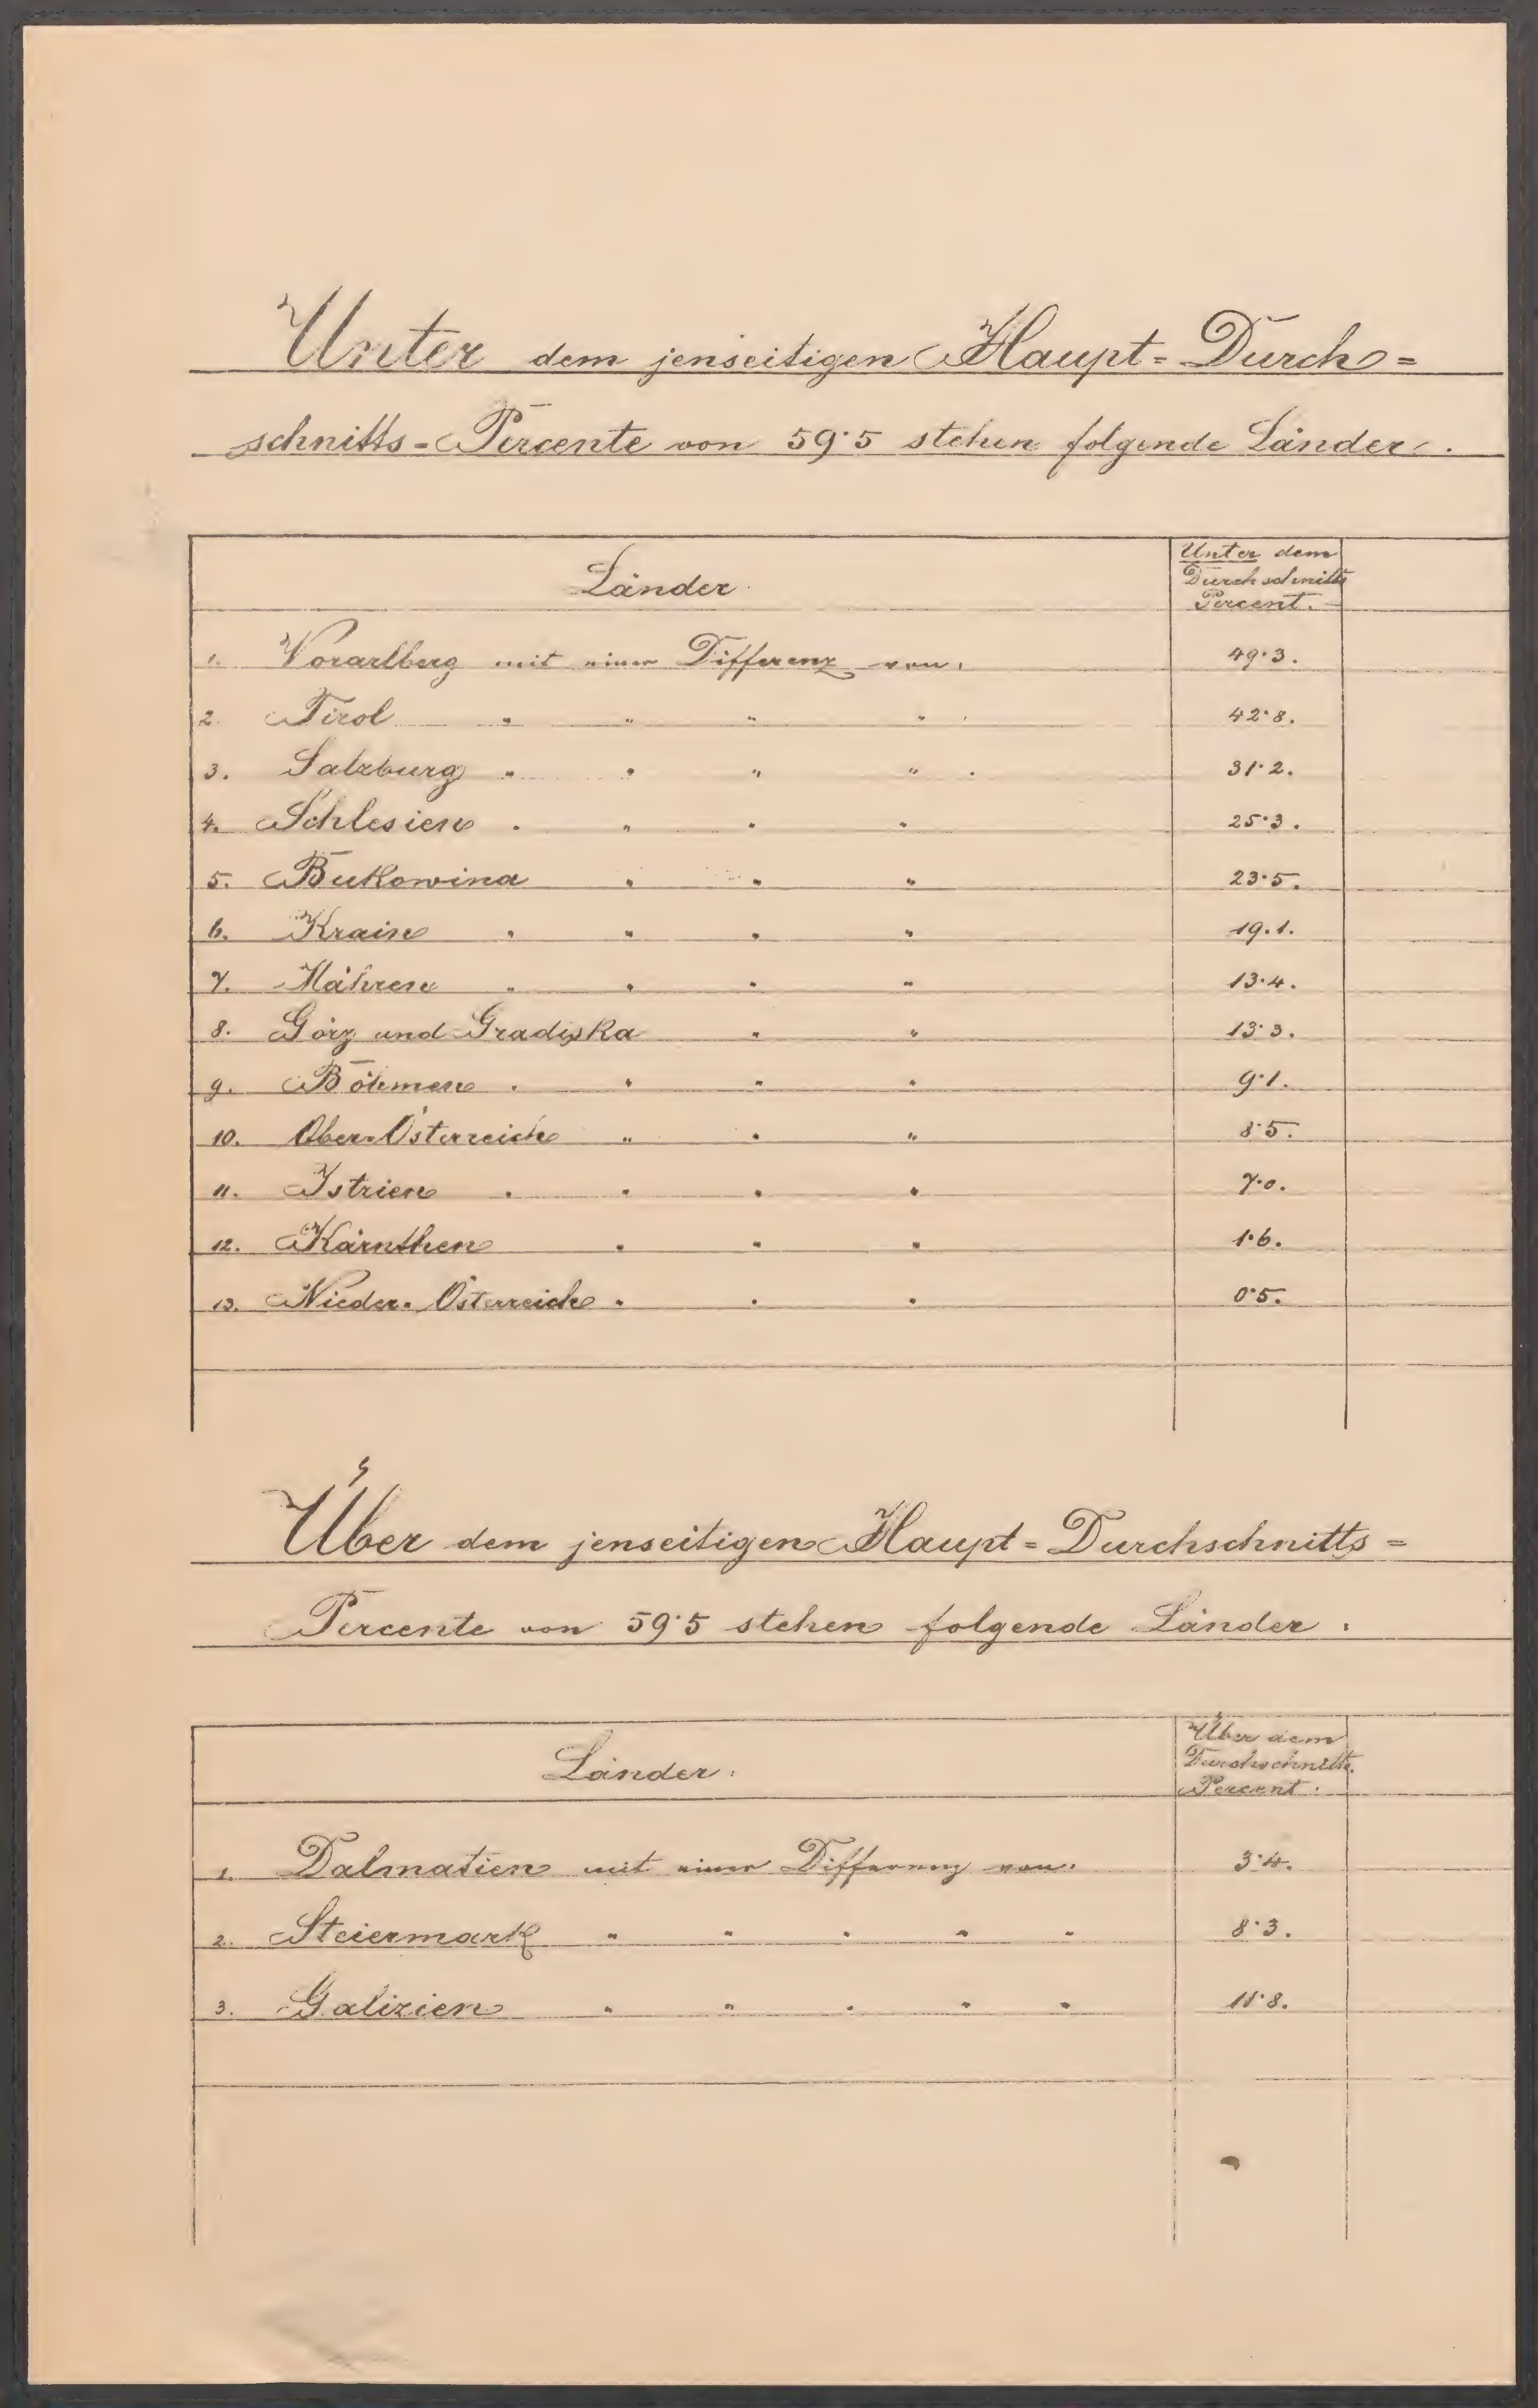 Unter dem jenseitigen Haupt=Durch=
schnitts=Percente von 59·5 stehen folgende Länder.
Länder.
Unter dem
Durchschnitts
Percent.
1. Vorarlberg mit einer Differenz von. 49·3.
2. Tirol " " " " 42·8.
3. Salzburg " " " " 31·2.
4. Schlesien " " " " 25·3.
5. Bukowina " " " 23·5.
6. Krain " " " " 19·1.
7. Mähren " " " " 13·4.
8. Görz und Gradiska " " 13·3.
9. Böhmen " " " " 9·1.
10. Ober-Österreich " " " 8·5.
11. Istrien " " " " 7·0.
12. Kärnthen " " " 1·6.
13. Nieder-Österreich " " " 0·5.
Über dem jenseitigen Haupt=Durchschnitts=
Percente von 59·5 stehen folgende Länder.
Länder.
Über dem
Durchschnitts
Percent.
1. Dalmatien mit einer Differenz von. 3·4.
2. Steiermark " " " " " 8·3.
3. Galizien " " " " " 11·8.